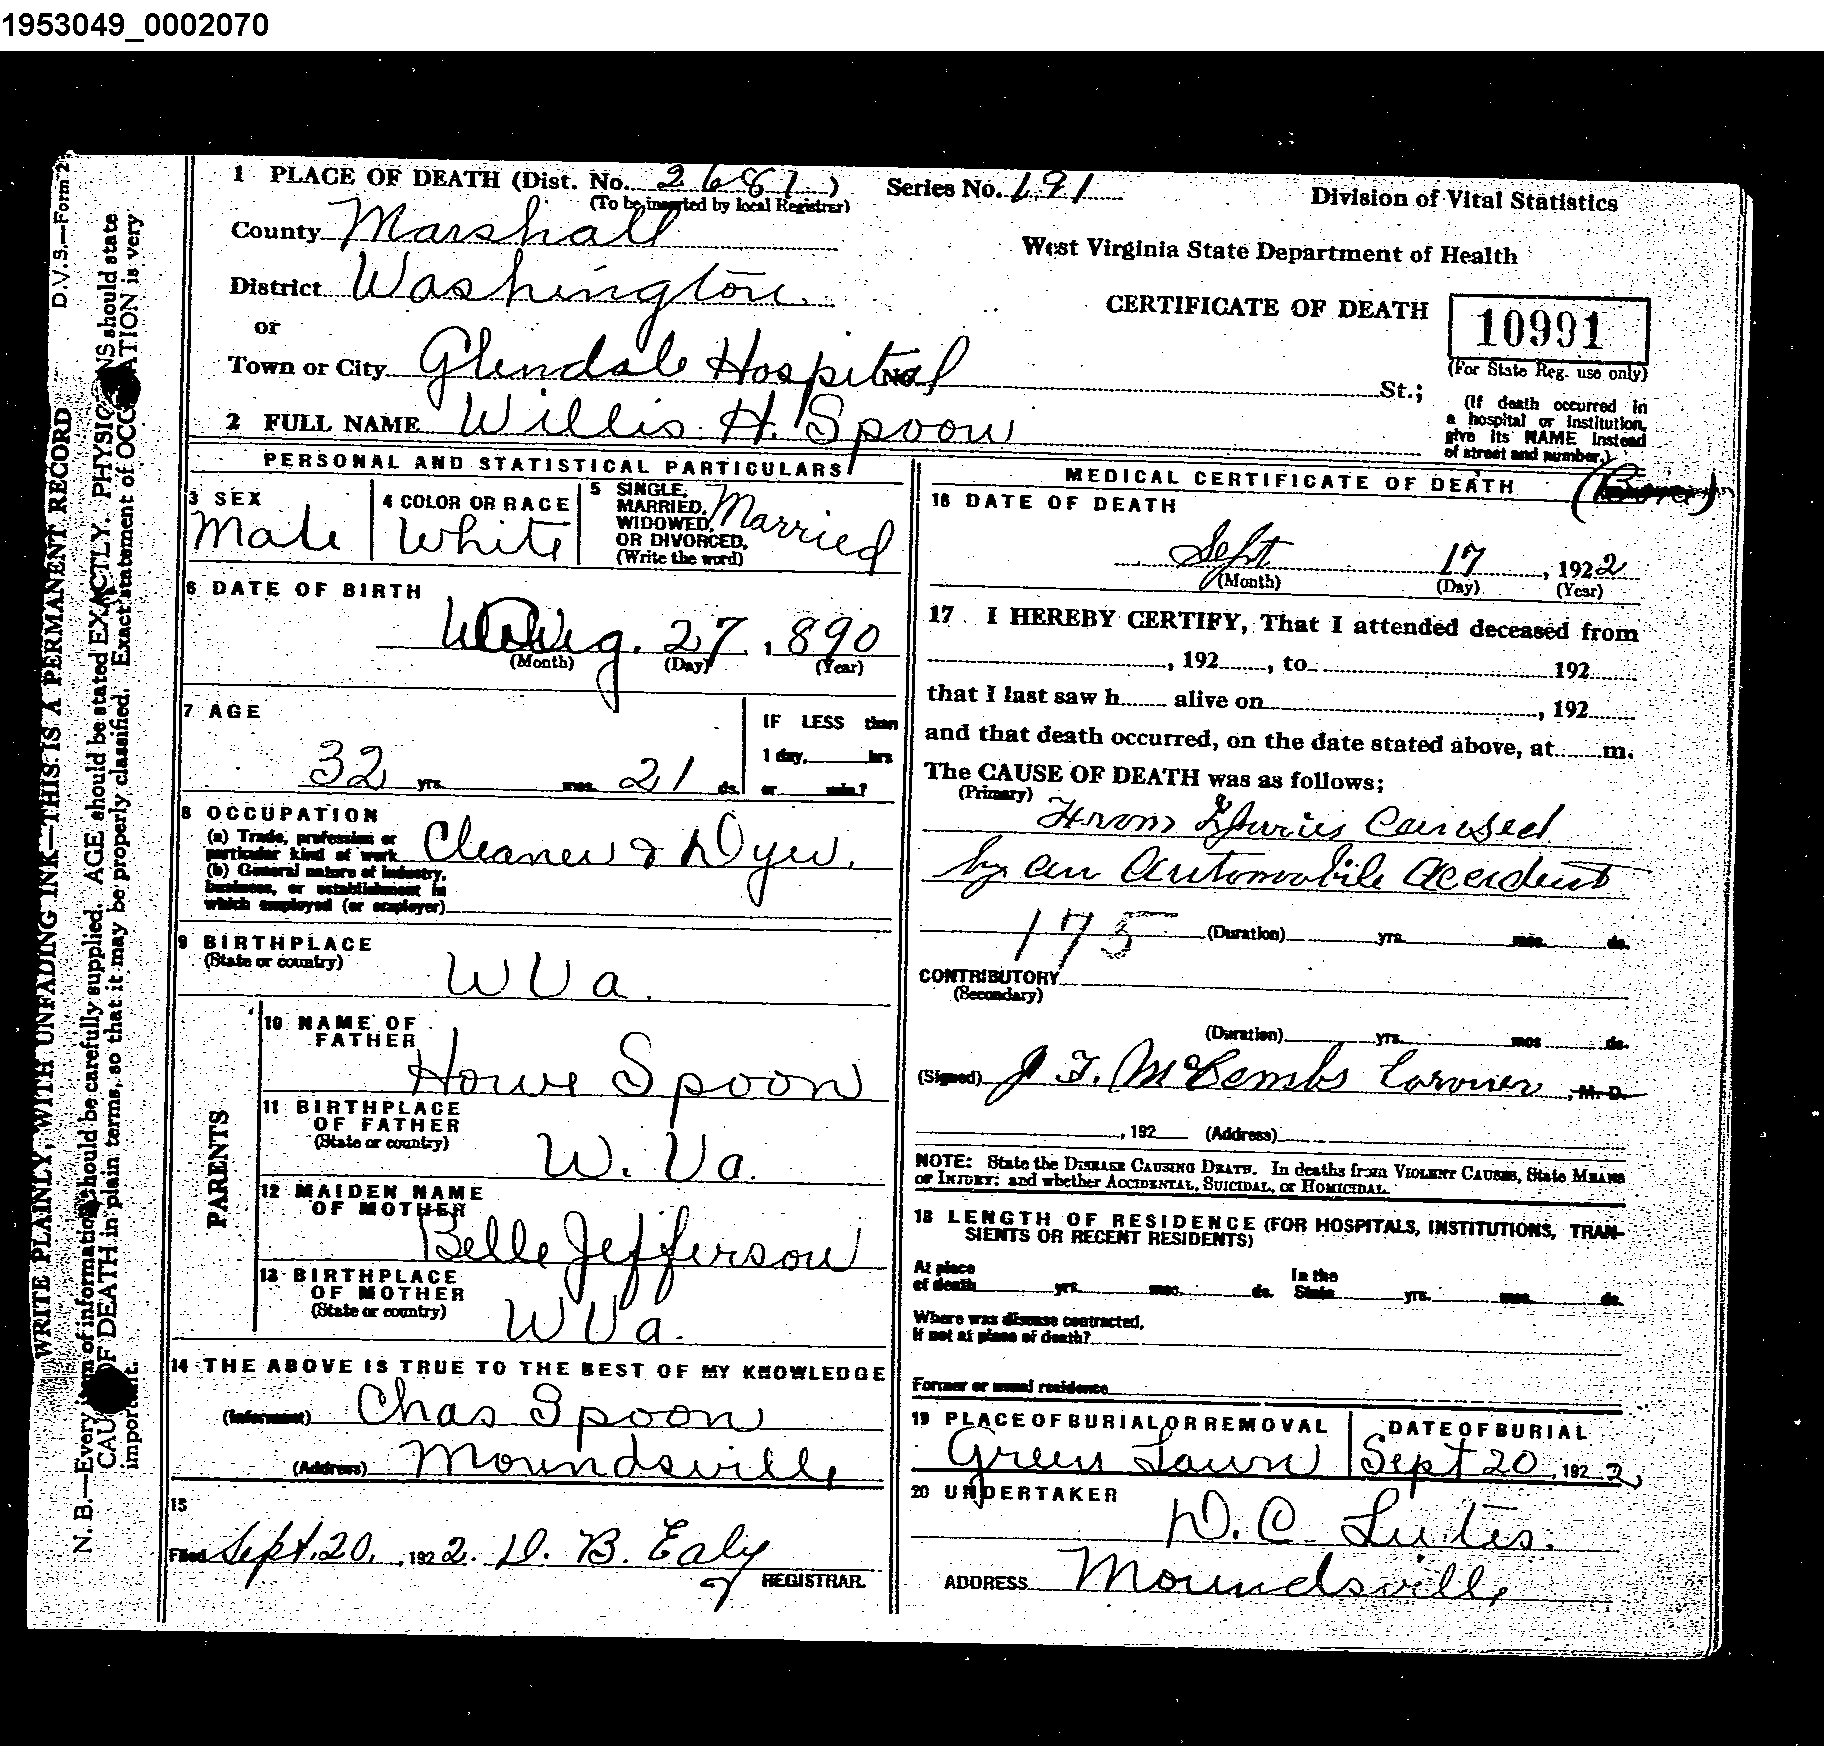 1953049_0002070
1 PLACE OF DEATH (Dist. No. 2681) Series No. 191 Division of Vital Statistics
(To be inserted by local Registrar)
County Marshall
West Virginia State Department of Health
District Washington
CERTIFICATE OF DEATH 10991
or
(For State Reg. use only)
Town or City Glendale Hospital No. St.;
(If death occurred in
a hospital or institution,
give its NAME instead
of street and number.)
2 FULL NAME Willis H. Spoon
PERSONAL AND STATISTICAL PARTICULARS
3 SEX
Male
4 COLOR OR RACE
White
5 SINGLE,
MARRIED,
WIDOWED,
OR DIVORCED,
(Write the word)
Married
6 DATE OF BIRTH
Aug. 27, 890
(Month) (Day) (Year)
7 AGE
32 yrs. mos. 21 ds.
IF LESS than
1 day, hrs
or min.?
8 OCCUPATION
(a) Trade, profession or
particular kind of work Cleaner & Dyer.
(b) General nature of industry,
business, or establishment in
which employed (or employer)
9 BIRTHPLACE
(State or country)
W Va.
PARENTS
10 NAME OF
FATHER
Howe Spoon
11 BIRTHPLACE
OF FATHER
(State or country)
W. Va.
12 MAIDEN NAME
OF MOTHER
Belle Jefferson
13 BIRTHPLACE
OF MOTHER
(State or country)
W Va.
14 THE ABOVE IS TRUE TO THE BEST OF MY KNOWLEDGE
(Informant) Chas Spoon
(Address) Moundsville
15
Filed Sept. 20, 1922. D. B. Ealy
REGISTRAR.
MEDICAL CERTIFICATE OF DEATH
16 DATE OF DEATH
Sept 17, 1922
(Month) (Day) (Year)
17 I HEREBY CERTIFY, That I attended deceased from
, 192 , to 192
that I last saw h alive on , 192
and that death occurred, on the date stated above, at m.
The CAUSE OF DEATH was as follows;
(Primary)
From Ijuries Caused
by an Automobile Accident
175 (Duration) yrs. mos. ds.
CONTRIBUTORY
(Secondary)
(Duration) yrs. mos ds.
(Signed) J. F. McCombs Coroner, M. D.
, 192 (Address)
NOTE: State the DISEASE CAUSING DEATH. In deaths from VIOLENT CAUSES, State MEANS
OF INJURY; and whether ACCIDENTAL, SUICIDAL, or HOMICIDAL.
18 LENGTH OF RESIDENCE (FOR HOSPITALS, INSTITUTIONS, TRAN-
SIENTS OR RECENT RESIDENTS)
At place
of death yrs. mos. ds.
In the
State yrs. mos. ds.
Where was disease contracted,
If not at place of death?
Former or usual residence
19 PLACE OF BURIAL OR REMOVAL
Green Lawn
DATE OF BURIAL
Sept 20, 1922
20 UNDERTAKER
D. C. Lutes.
ADDRESS Moundsville
D.V.S.—Form 2
WRITE PLAINLY, WITH UNFADING INK—THIS IS A PERMANENT RECORD
N. B.—Every item of information should be carefully supplied. AGE should be stated EXACTLY. PHYSICIANS should state
CAUSE OF DEATH in plain terms, so that it may be properly classified. Exact statement of OCCUPATION is very
important.